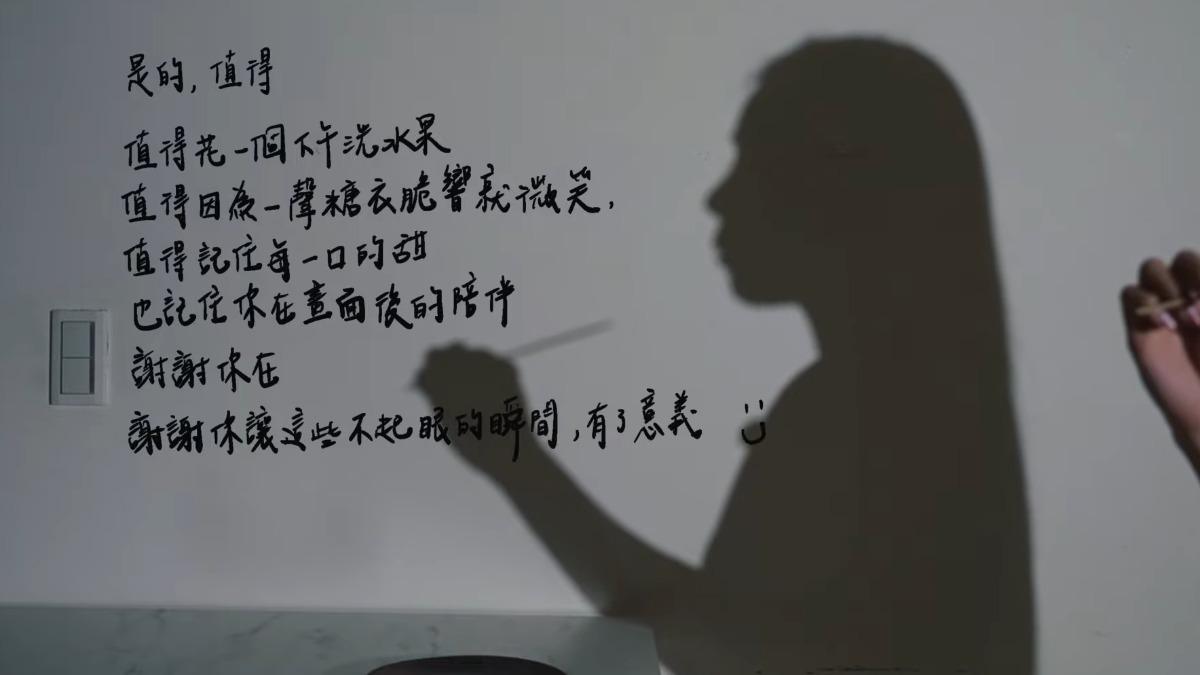 是的，值得
值得花一個下午洗水果
值得因為一聲糖衣脆響就微笑，
值得記住每一口的甜
也記住你在畫面後的陪伴
謝謝你在
謝謝你讓這些不起眼的瞬間，有了意義 :)